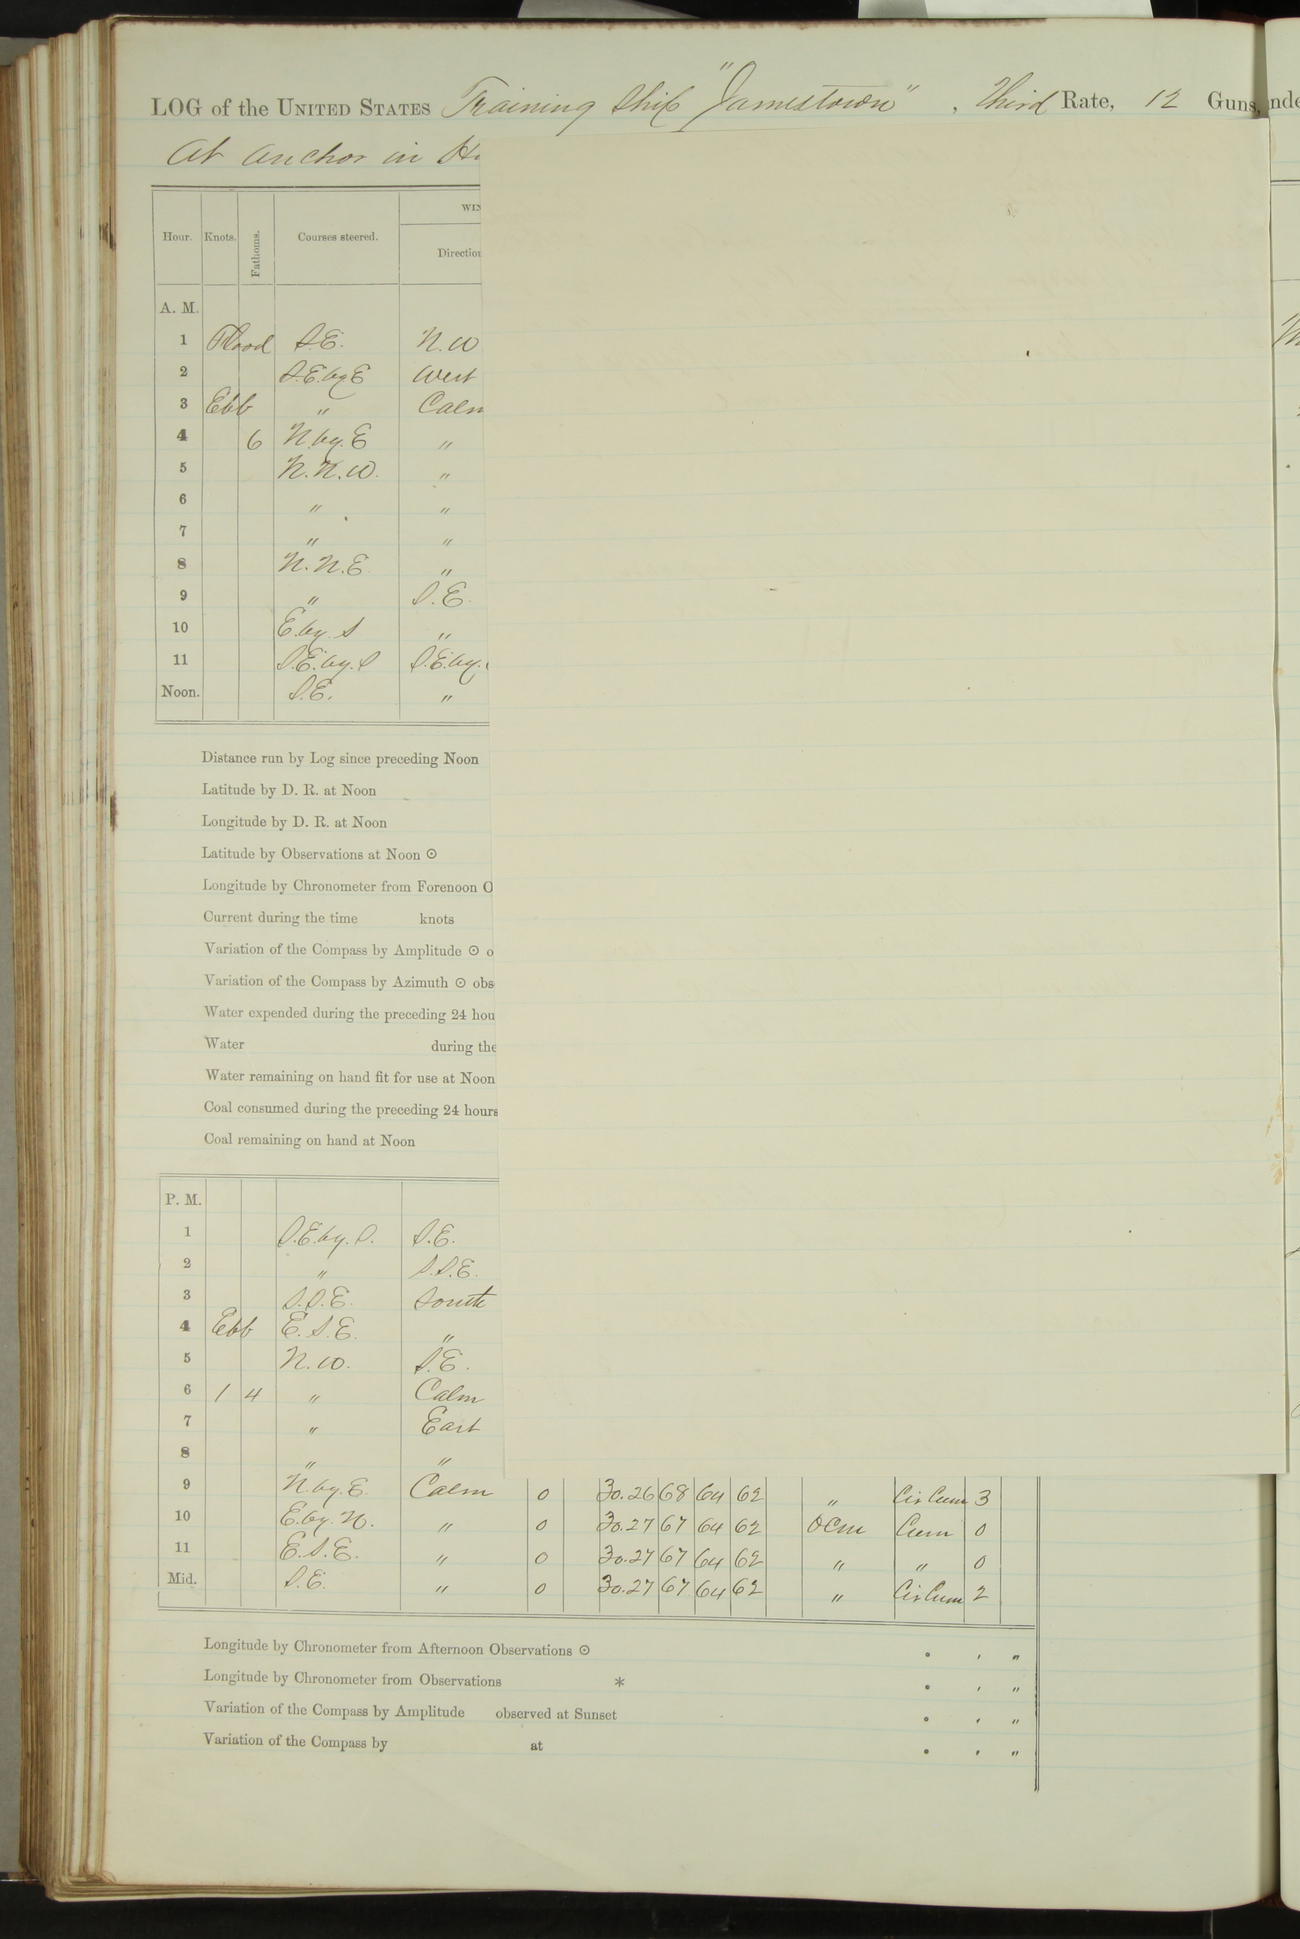 LOG of the UNITED STATES Training Ship "Jamestown", Third Rate, 12 Guns,
At anchor in
Hour. Knots. Fathoms. Courses steered. WIN
Direction
A. M.
1 Flood S.E. N.W
2 S.E. by E West
3 Ebb " Calm
4 6 N. by. E "
5 N.N.W. "
6 " "
7 " "
8 N.N.E. "
9 " S.E.
10 E. by. S "
11 S.E. by. S S.E. by.
Noon. S.E. "
Distance run by Log since preceding Noon
Latitude by D. R. at Noon
Longitude by D. R. at Noon
Latitude by Observations at Noon ⊙
Longitude by Chronometer from Forenoon O
Current during the time knots
Variation of the Compass by Amplitude ⊙ o
Variation of the Compass by Azimuth ⊙ obs
Water expended during the preceding 24 hou
Water during the
Water remaining on hand fit for use at Noon
Coal consumed during the preceding 24 hours
Coal remaining on hand at Noon
P. M.
1 S.E. by. S. S.E.
2 " S.S.E.
3 S.S.E. South
4 Ebb E.S.E. "
5 N.W. S.E.
6 1 4 " Calm
7 " East
8 " "
9 N. by. E. Calm 0 30.26 68 64 62 " Cir Cum 3
10 E. by. N. " 0 30.27 67 64 62 OCM Cum 0
11 E.S.E. " 0 30.27 67 64 62 " " 0
Mid. S.E. " 0 30.27 67 64 62 " Cir Cum 2
Longitude by Chronometer from Afternoon Observations ⊙ ° ' "
Longitude by Chronometer from Observations * ° ' "
Variation of the Compass by Amplitude observed at Sunset ° ' "
Variation of the Compass by at ° ' "